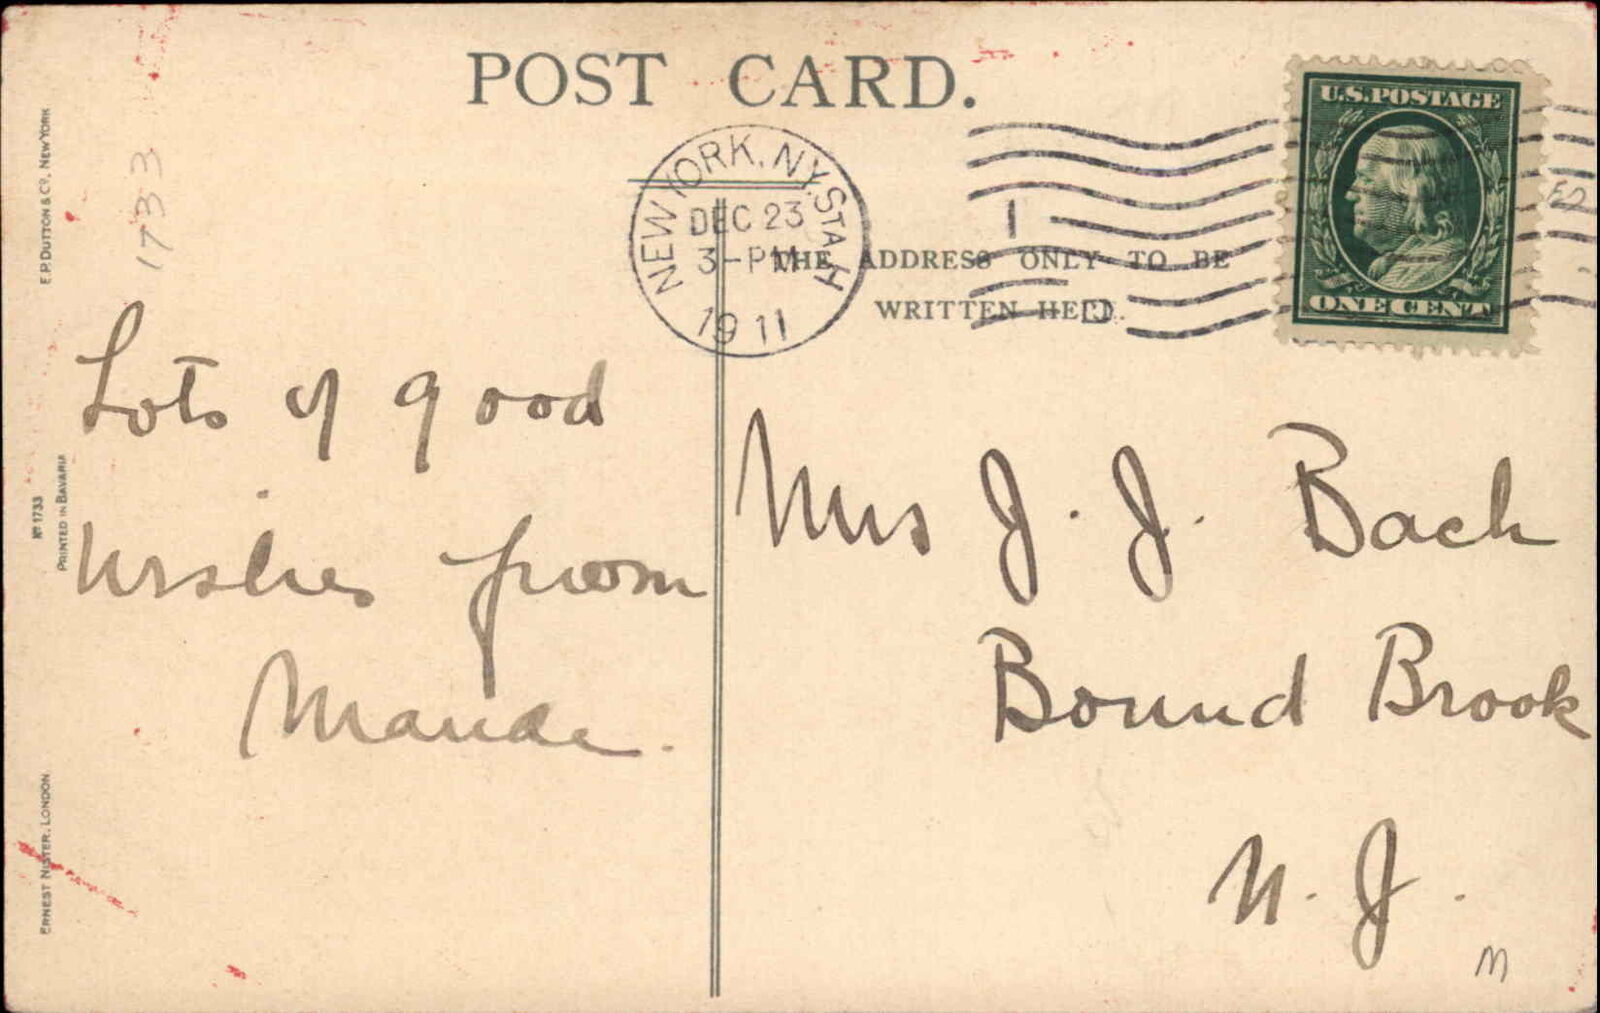 POST CARD.
U.S. POSTAGE
ONE CENT
NEW YORK, N.Y. STA H
DEC 23
3-PM
1911
1
D
THE ADDRESS ONLY TO BE
WRITTEN HERE.
E.P. DUTTON & Co. NEW YORK
No 1733
PRINTED IN BAVARIA
ERNEST NISTER, LONDON
1733
Lots of good
wishes from
Maude.
Mrs J. J. Bach
Bound Brook
N. J.
M